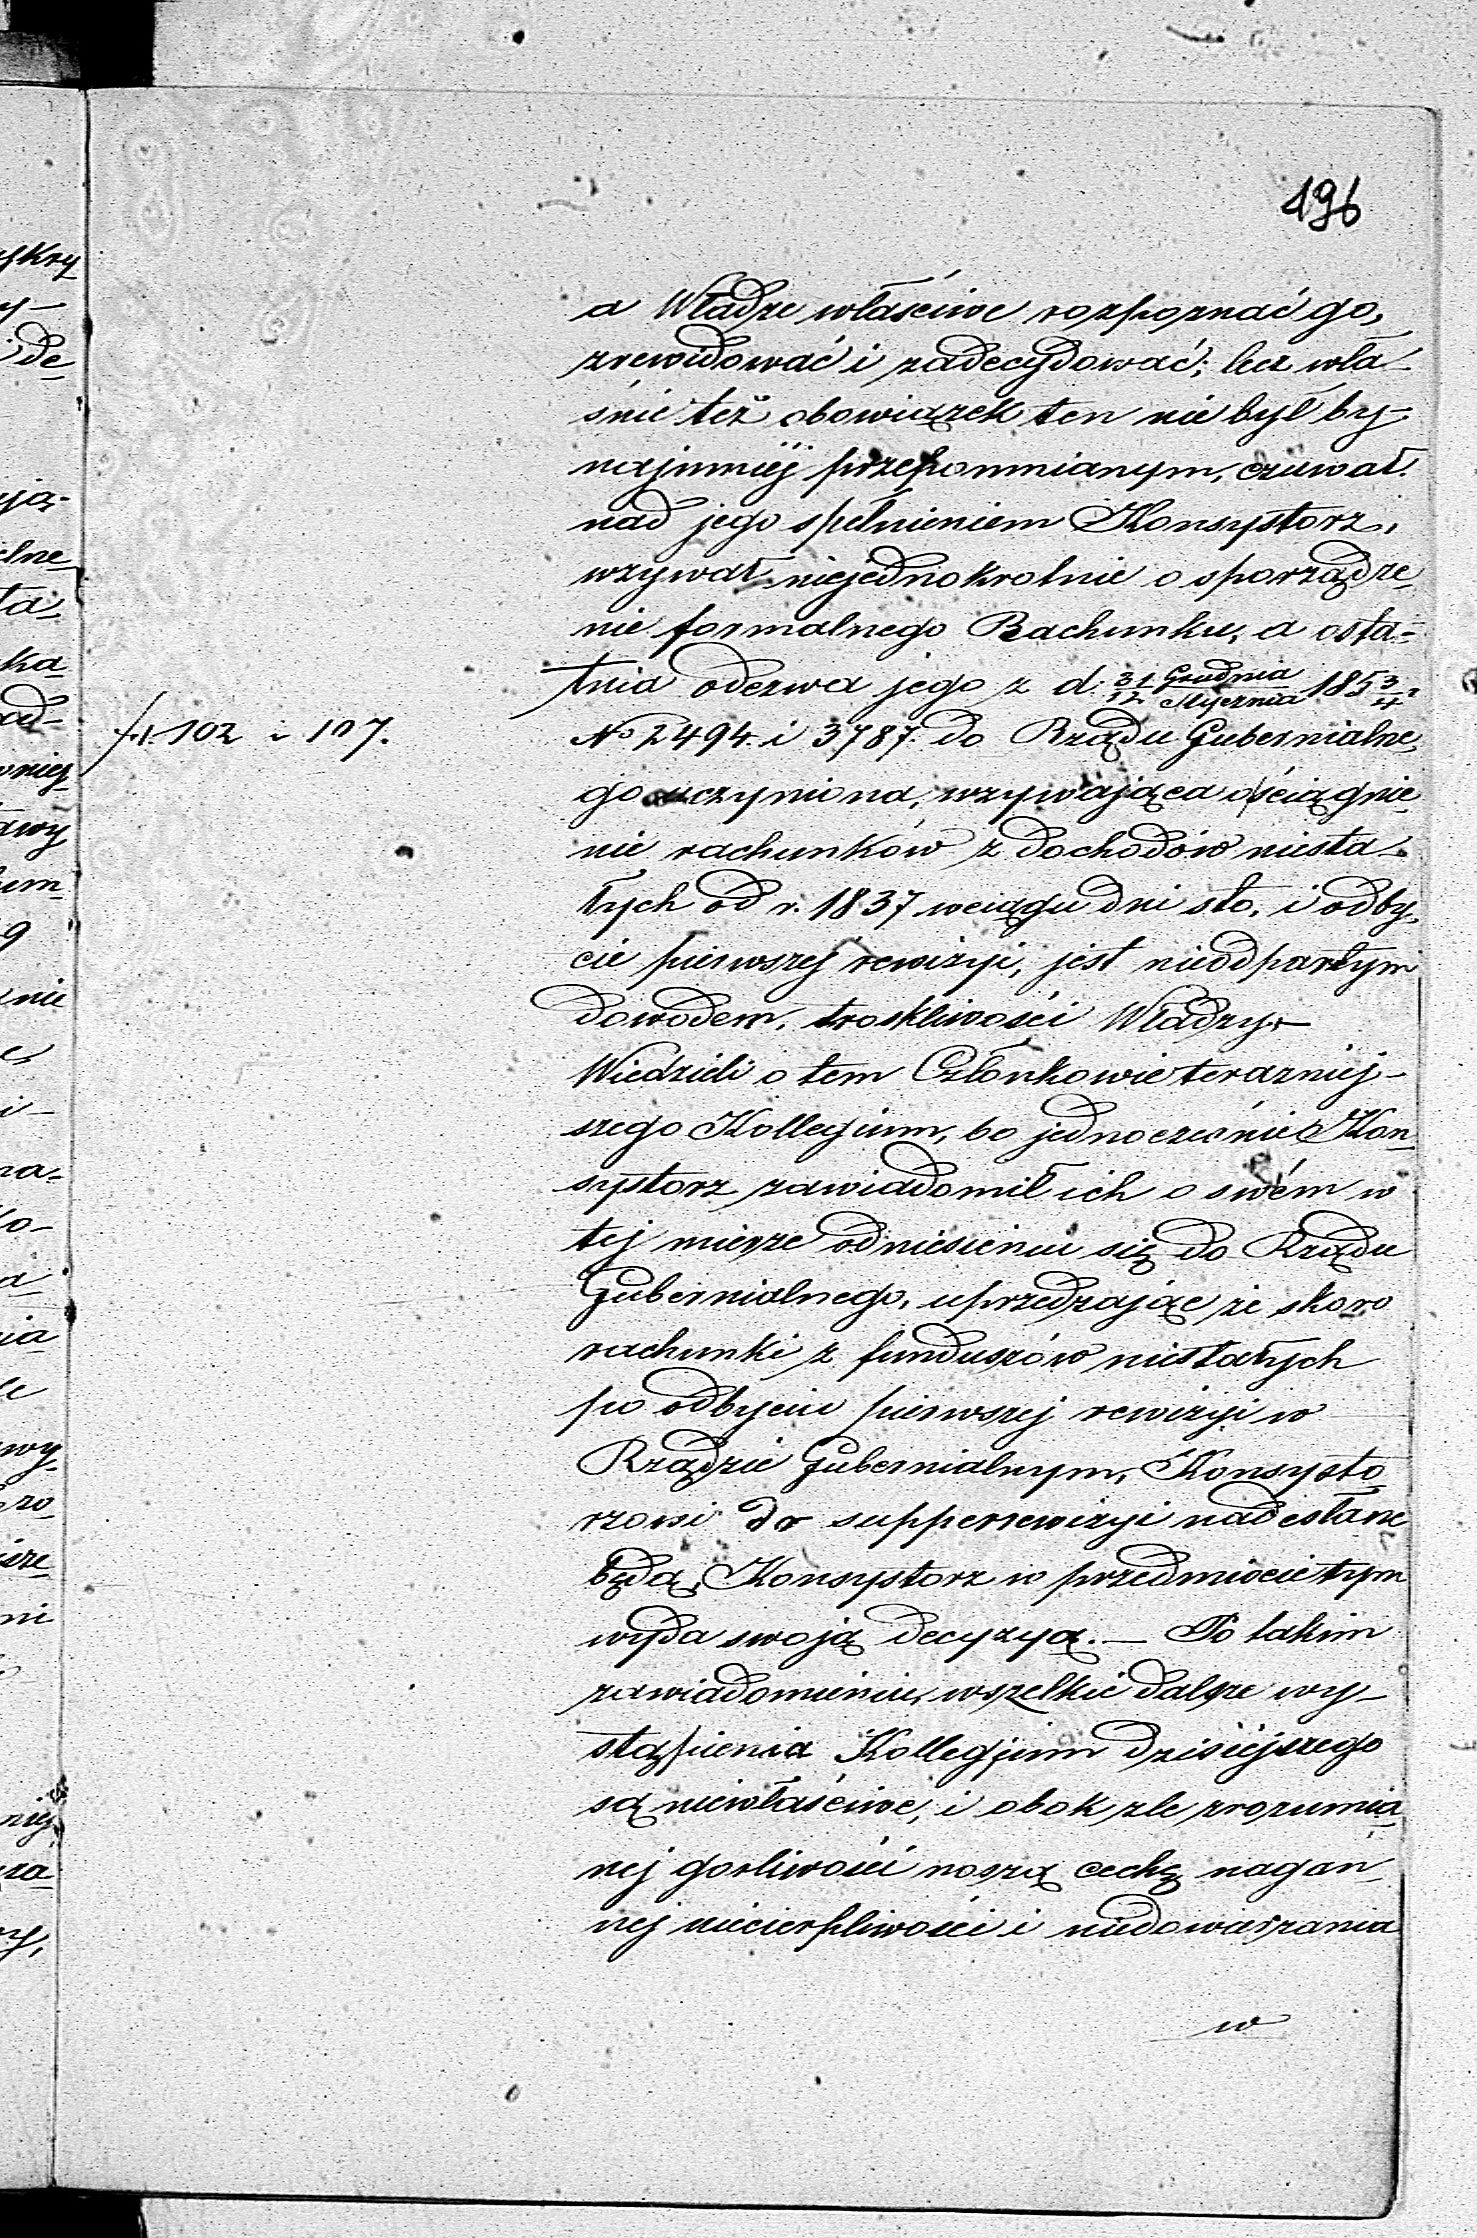 196
a Władze właściwe rozpoznać go,
zrewidować i zadecydować; lecz wła-
śnie też obowiązek ten nie był by-
najmniéj przepomnianym, czuwał
nad jego spełnieniem Konsystorz,
wzywał niejednokrotnie o sporządze-
nie formalnego Rachunku, a osta-
tnia odezwa jego z d. 31 Grudnia/12 Stycznia 185 3/4 r
f. 102 i 107.
No 2494. i 3787. do Rządu Gubernialne-
go uczyniona, wzywająca o ściągnie-
nie rachunków z dochodów niesta-
łych od r. 1837 w ciągu dni sto, i odby-
cie pierwszej rewizyi, jest nieodpartym
dowodem, troskliwości Władzy. —
Wiedzieli o tem Członkowie terazniej-
szego Kollegium, bo jednocześnie Kon-
systorz zawiadomił ich o swém w
tej mierze odniesieniu się do Rządu
Gubernialnego, uprzedzając że skoro
rachunki z funduszów niestałych
po odbyciu pierwszej rewizyi w
Rządzie Gubernialnym, Konsysto-
rzowi do supperrewizyi nadesłane
będą, Konsystorz w przedmiocie tym
wyda swoją decyzyą. — Po takim
zawiadomieniu, wszelkie dalsze wy-
stąpienia Kollegjum dzisiejszego
są niewłaściwe, i obok zle zrozumia-
nej gorliwości noszą cechę nagan-
nej niecierpliwości i niedowierzania
w